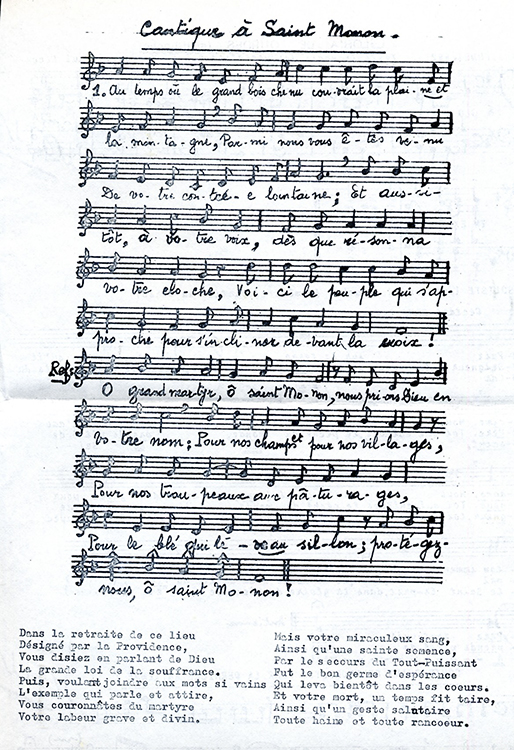 Cantique à Saint Monon.
1. Au temps où le grand bois chenu cou-vrait la plai-ne et
la mon-ta-gne, Par-mi nous vous ê-tes ve-nu
De vo-tre con-tré-e lointaine; Et aus-si-
tôt, à vo-tre voix, dès que ré-son-na
vo-tre clo-che, Voi-ci le peu-ple qui s'ap-
pro-che pour s'in-cli-ner de-vant la croix!
Ref.
O grand martyr, ô saint Mo-non, nous pri-ons Dieu en
vo-tre nom; Pour nos champs et pour nos vil-la-ges,
Pour nos trou-peaux aux pâ-tu-ra-ges,
Pour le blé qui lè-ve au sil-lon; pro-té-gez-
nous, ô saint Mo-non!
Dans la retraite de ce lieu
Désigné par la Providence,
Vous disiez en parlant de Dieu
La grande loi de la souffrance.
Puis, voulant joindre aux mots si vains
L'exemple qui parle et attire,
Vous couronnâtes du martyre
Votre labeur grave et divin.
Mais votre miraculeux sang,
Ainsi qu'une sainte semence,
Par le secours du Tout-Puissant
Fut le bon germe d'espérance
Qui leva bientôt dans les coeurs.
Et votre mort, un temps fit taire,
Ainsi qu'un geste salutaire
Toute haine et toute rancoeur.